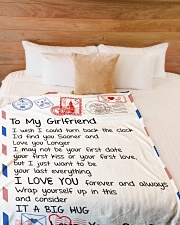 To My Girlfriend
I wish I could turn back the clock
I'd find you Sooner and
Love you Longer
I may not be your first date
your first kiss or your first love,
but I just want to be
your last everything
I LOVE YOU forever and always
Wrap yourself up in this
and consider
IT A BIG HUG